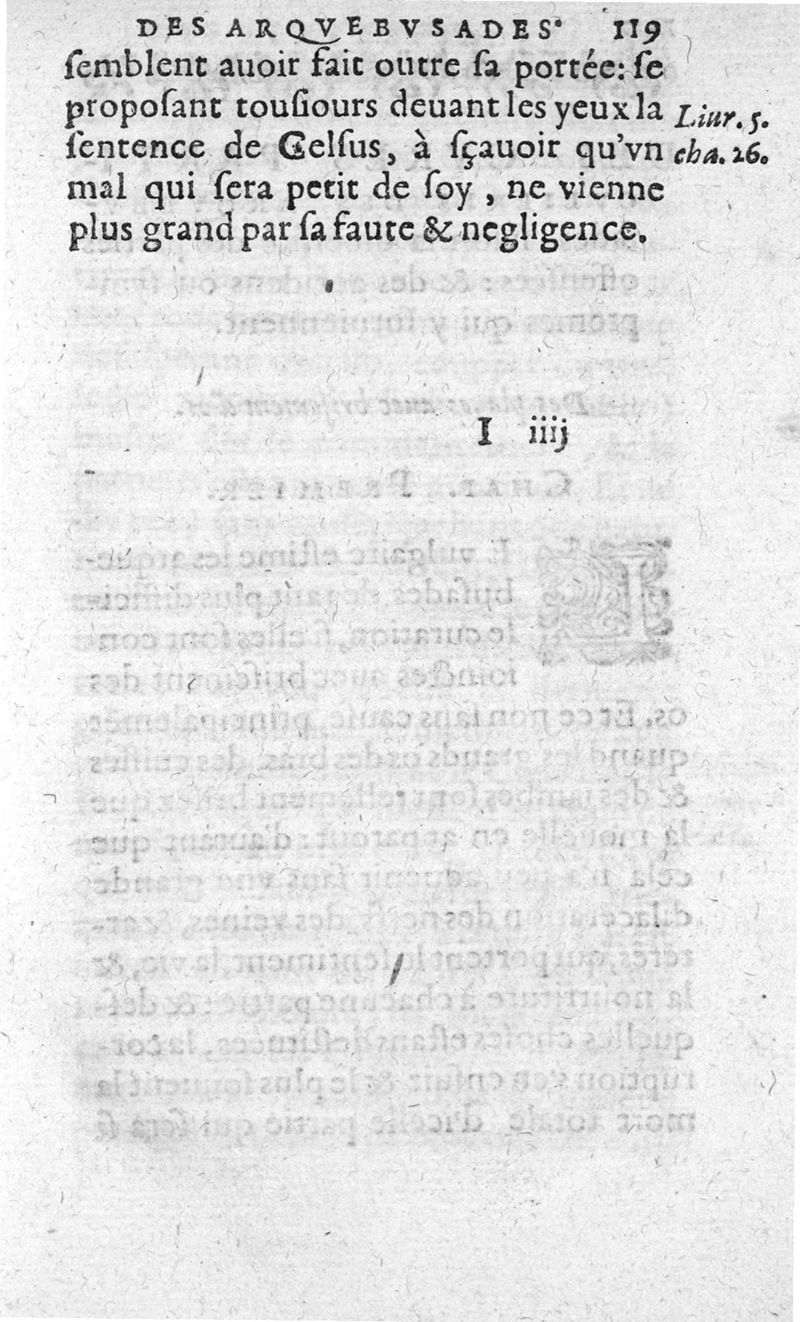 DES ARQVEBVSADES. 119
ſemblent auoir fait outre ſa portée: ſe
propoſant touſiours deuant les yeux la
ſentence de Celſus, à ſçauoir qu'vn
mal qui ſera petit de ſoy, ne vienne
plus grand par ſa faute & negligence.
Liur. 5.
cha. 26.
I iiij